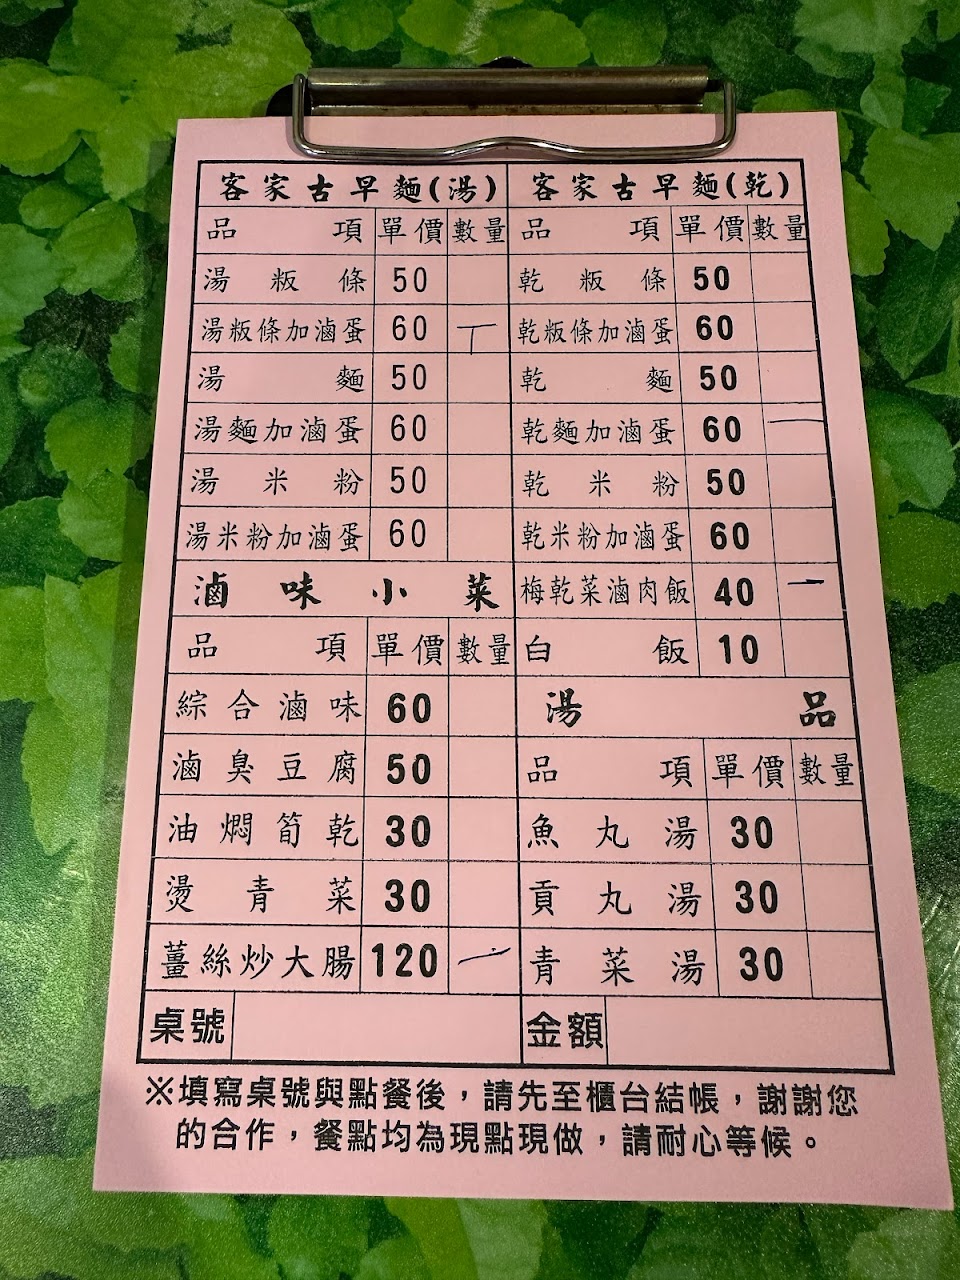 客家古早麵(湯)
品項 單價 數量
湯粄條 50
湯粄條加滷蛋 60 丅
湯麵 50
湯麵加滷蛋 60
湯米粉 50
湯米粉加滷蛋 60
滷味小菜
品項 單價 數量
綜合滷味 60
滷臭豆腐 50
油燜筍乾 30
燙青菜 30
薑絲炒大腸 120 一
桌號
客家古早麵(乾)
品項 單價 數量
乾粄條 50
乾粄條加滷蛋 60
乾麵 50
乾麵加滷蛋 60 一
乾米粉 50
乾米粉加滷蛋 60
梅乾菜滷肉飯 40 一
白飯 10
湯品
品項 單價 數量
魚丸湯 30
貢丸湯 30
青菜湯 30
金額
※填寫桌號與點餐後，請先至櫃台結帳，謝謝您
的合作，餐點均為現點現做，請耐心等候。